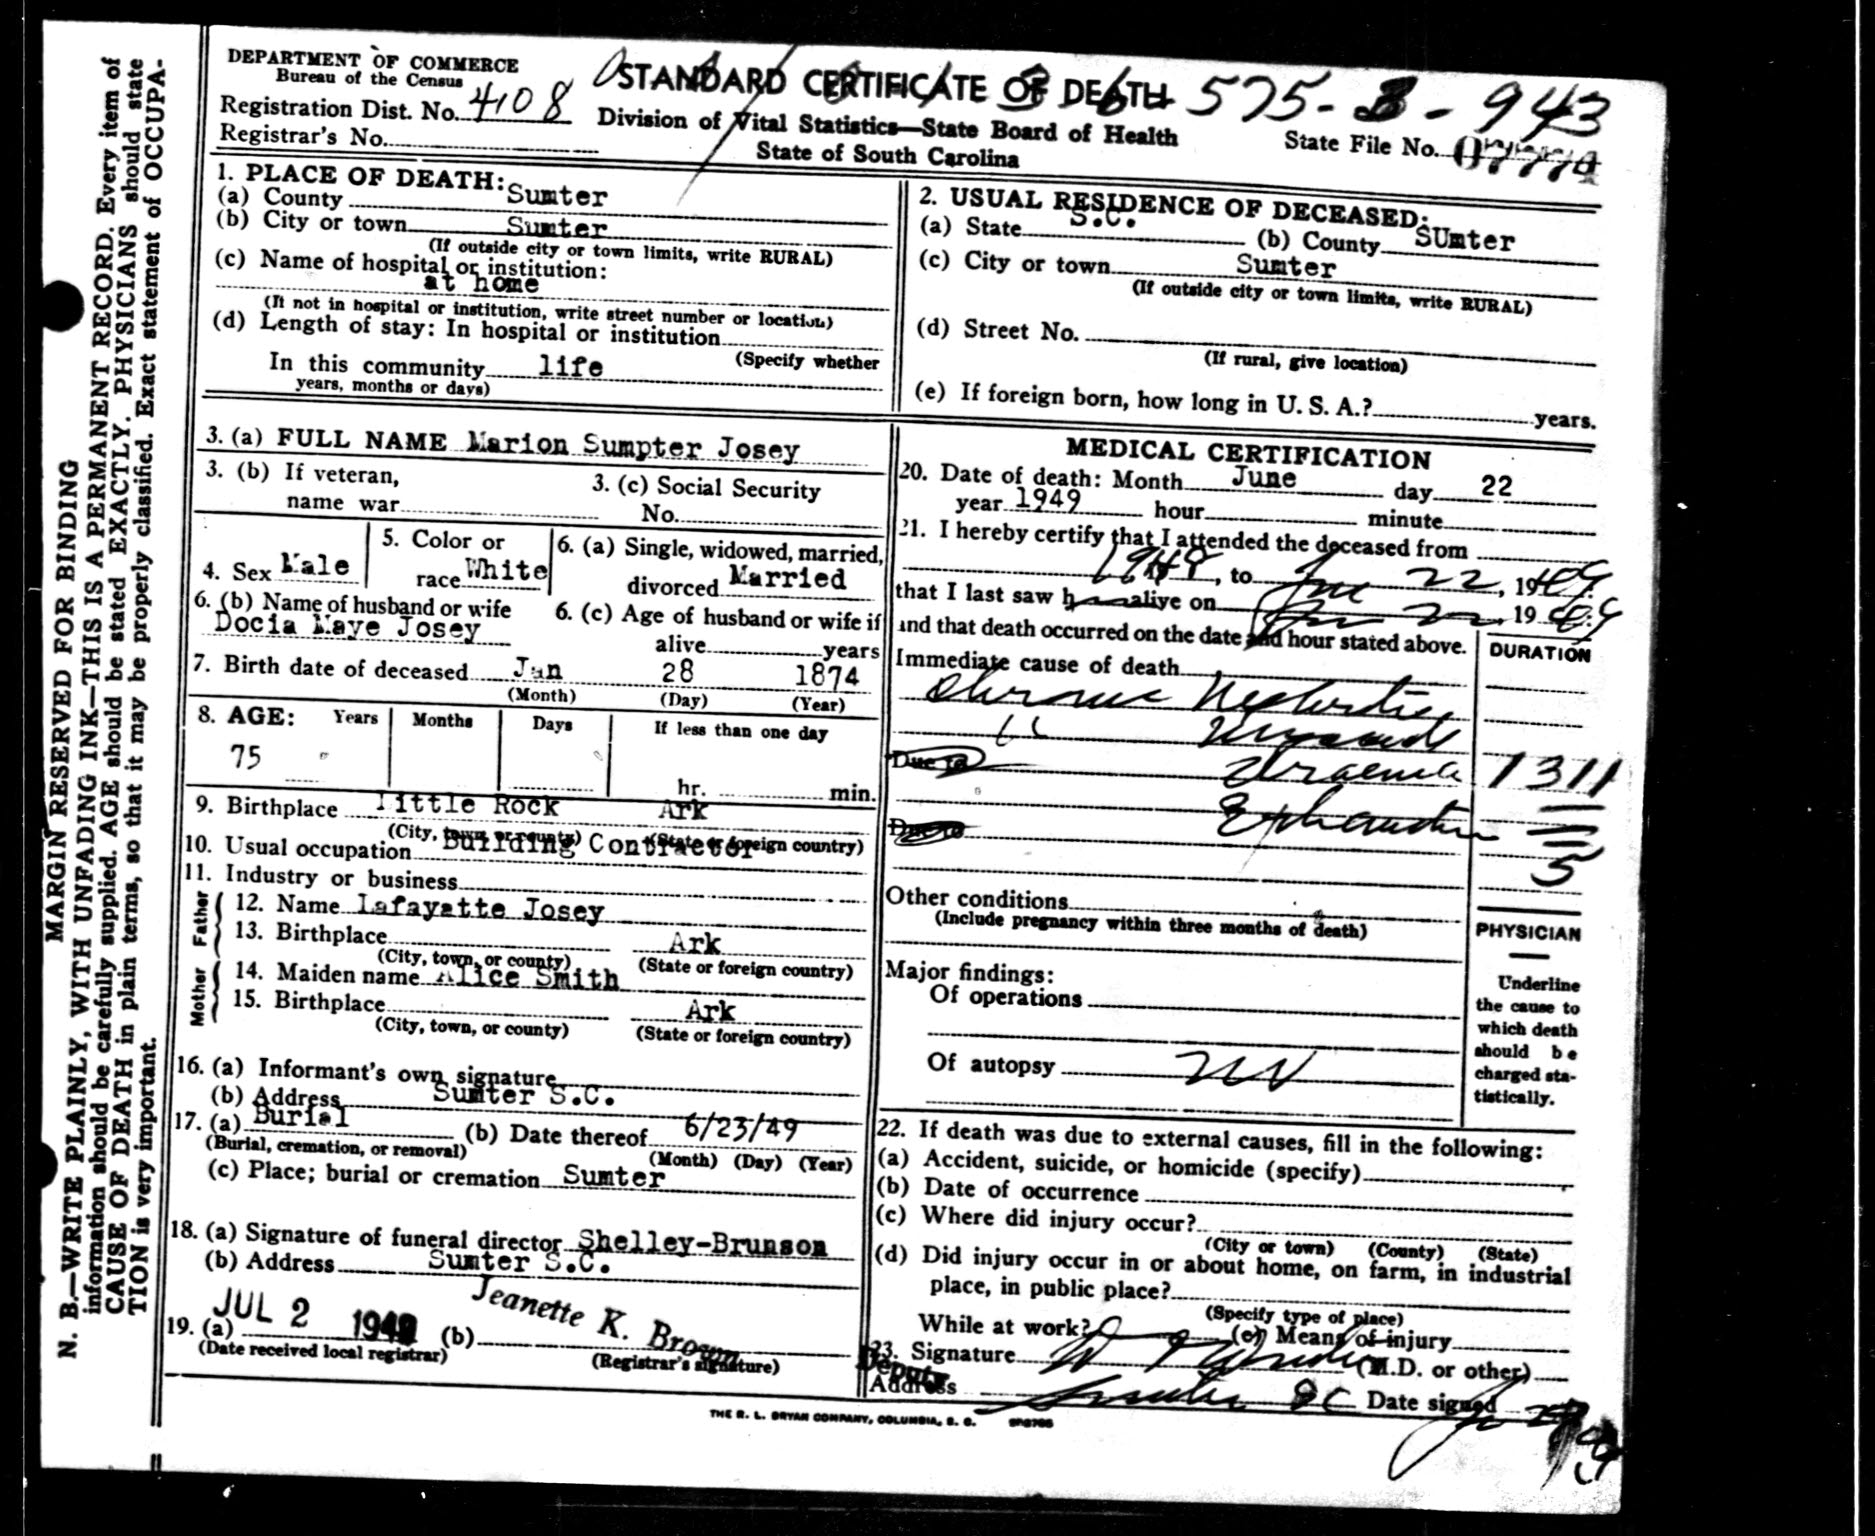 DEPARTMENT OF COMMERCE
Bureau of the Census
STANDARD CERTIFICATE OF DEATH 575-B-943
Registration Dist. No. 4108
Division of Vital Statistics—State Board of Health
State File No.
Registrar's No.
State of South Carolina
1. PLACE OF DEATH:
(a) County Sumter
(b) City or town Sumter
(If outside city or town limits, write RURAL)
(c) Name of hospital or institution:
at home
(If not in hospital or institution, write street number or location)
(d) Length of stay: In hospital or institution
(Specify whether
In this community life
years, months or days)
2. USUAL RESIDENCE OF DECEASED:
(a) State S.C. (b) County SUmter
(c) City or town Sumter
(If outside city or town limits, write RURAL)
(d) Street No.
(If rural, give location)
(e) If foreign born, how long in U. S. A.? years.
3. (a) FULL NAME Marion Sumpter Josey
3. (b) If veteran,
name war
3. (c) Social Security
No.
4. Sex Male
5. Color or
race White
6. (a) Single, widowed, married,
divorced Married
6. (b) Name of husband or wife
Docia Maye Josey
6. (c) Age of husband or wife if
alive years
7. Birth date of deceased Jan 28 1874
(Month) (Day) (Year)
8. AGE: Years Months Days If less than one day
75
hr. min.
9. Birthplace Little Rock Ark
(City, town, or county) (State or foreign country)
10. Usual occupation Building Contractor
11. Industry or business
Father
12. Name Lafayette Josey
13. Birthplace Ark
(City, town, or county) (State or foreign country)
Mother
14. Maiden name Alice Smith
15. Birthplace Ark
(City, town, or county) (State or foreign country)
16. (a) Informant's own signature
(b) Address Sumter S.C.
17. (a) Burial (b) Date thereof 6/23/49
(Burial, cremation, or removal) (Month) (Day) (Year)
(c) Place; burial or cremation Sumter
18. (a) Signature of funeral director Shelley-Brunson
(b) Address Sumter S.C.
19. (a) JUL 2 1949 (b) Jeanette K. Brown
(Date received local registrar) (Registrar's signature)
MEDICAL CERTIFICATION
20. Date of death: Month June day 22
year 1949 hour minute
21. I hereby certify that I attended the deceased from
1948, to June 22, 1949
that I last saw h alive on 19 49
and that death occurred on the date and hour stated above.
DURATION
Immediate cause of death
Chronic Nephritis
" 
Due to Uraemia 1311
Due to Exhaustion
5
Other conditions
(Include pregnancy within three months of death)
PHYSICIAN
Underline
the cause to
which death
should be
charged sta-
tistically.
Major findings:
Of operations
Of autopsy no
22. If death was due to external causes, fill in the following:
(a) Accident, suicide, or homicide (specify)
(b) Date of occurrence
(c) Where did injury occur?
(City or town) (County) (State)
(d) Did injury occur in or about home, on farm, in industrial
place, in public place?
(Specify type of place)
While at work? (e) Means of injury
23. Signature (M.D. or other)
Deputy
Address Sumter SC Date signed
THE R. L. BRYAN COMPANY, COLUMBIA, S. C.
MARGIN RESERVED FOR BINDING
N. B.—WRITE PLAINLY, WITH UNFADING INK—THIS IS A PERMANENT RECORD. Every item of
information should be carefully supplied. AGE should be stated EXACTLY. PHYSICIANS should state
CAUSE OF DEATH in plain terms, so that it may be properly classified. Exact statement of OCCUPA-
TION is very important.